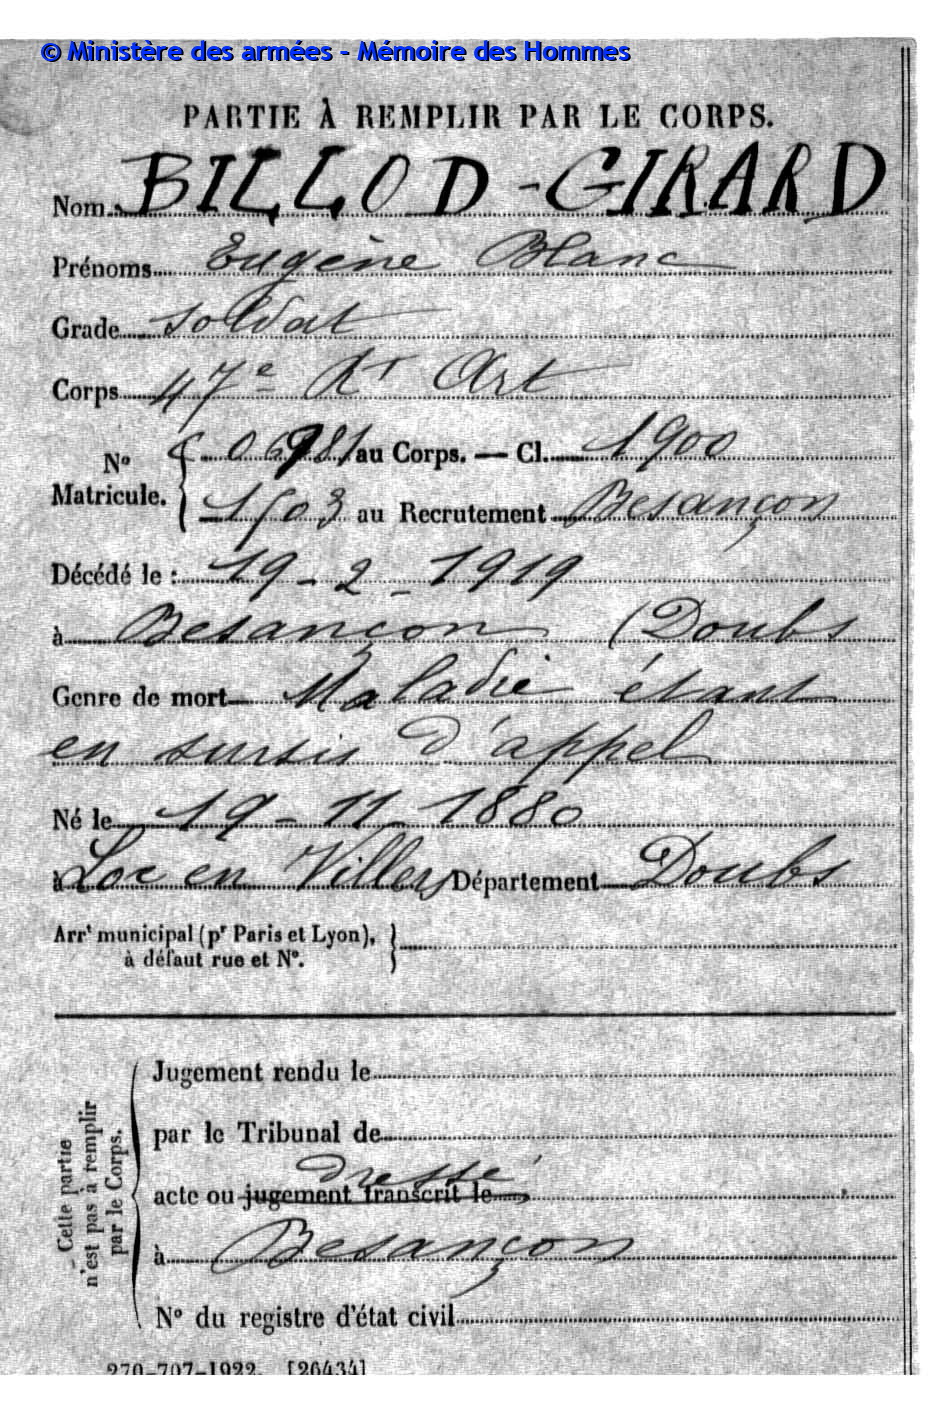 © Ministère des armées - Mémoire des Hommes
PARTIE À REMPLIR PAR LE CORPS.
Nom BILLOD-GIRARD
Prénoms Eugène Blanc
Grade soldat
Corps 47e Rt Art
No Matricule. { 06981 au Corps. — Cl. 1900
1503 au Recrutement Besançon
Décédé le : 19 - 2 - 1919
à Besançon (Doubs
Genre de mort Maladie étant
en sursis d'appel
Né le 19 - 11 - 1880
à Lac en Villers Département Doubs
Arrt municipal (pr Paris et Lyon),
à défaut rue et No.
Cette partie
n'est pas à remplir
par le Corps.
Jugement rendu le
par le Tribunal de
dressé
acte ou jugement transcrit le
à Besançon
No du registre d'état civil
270-707-1922. [26434]